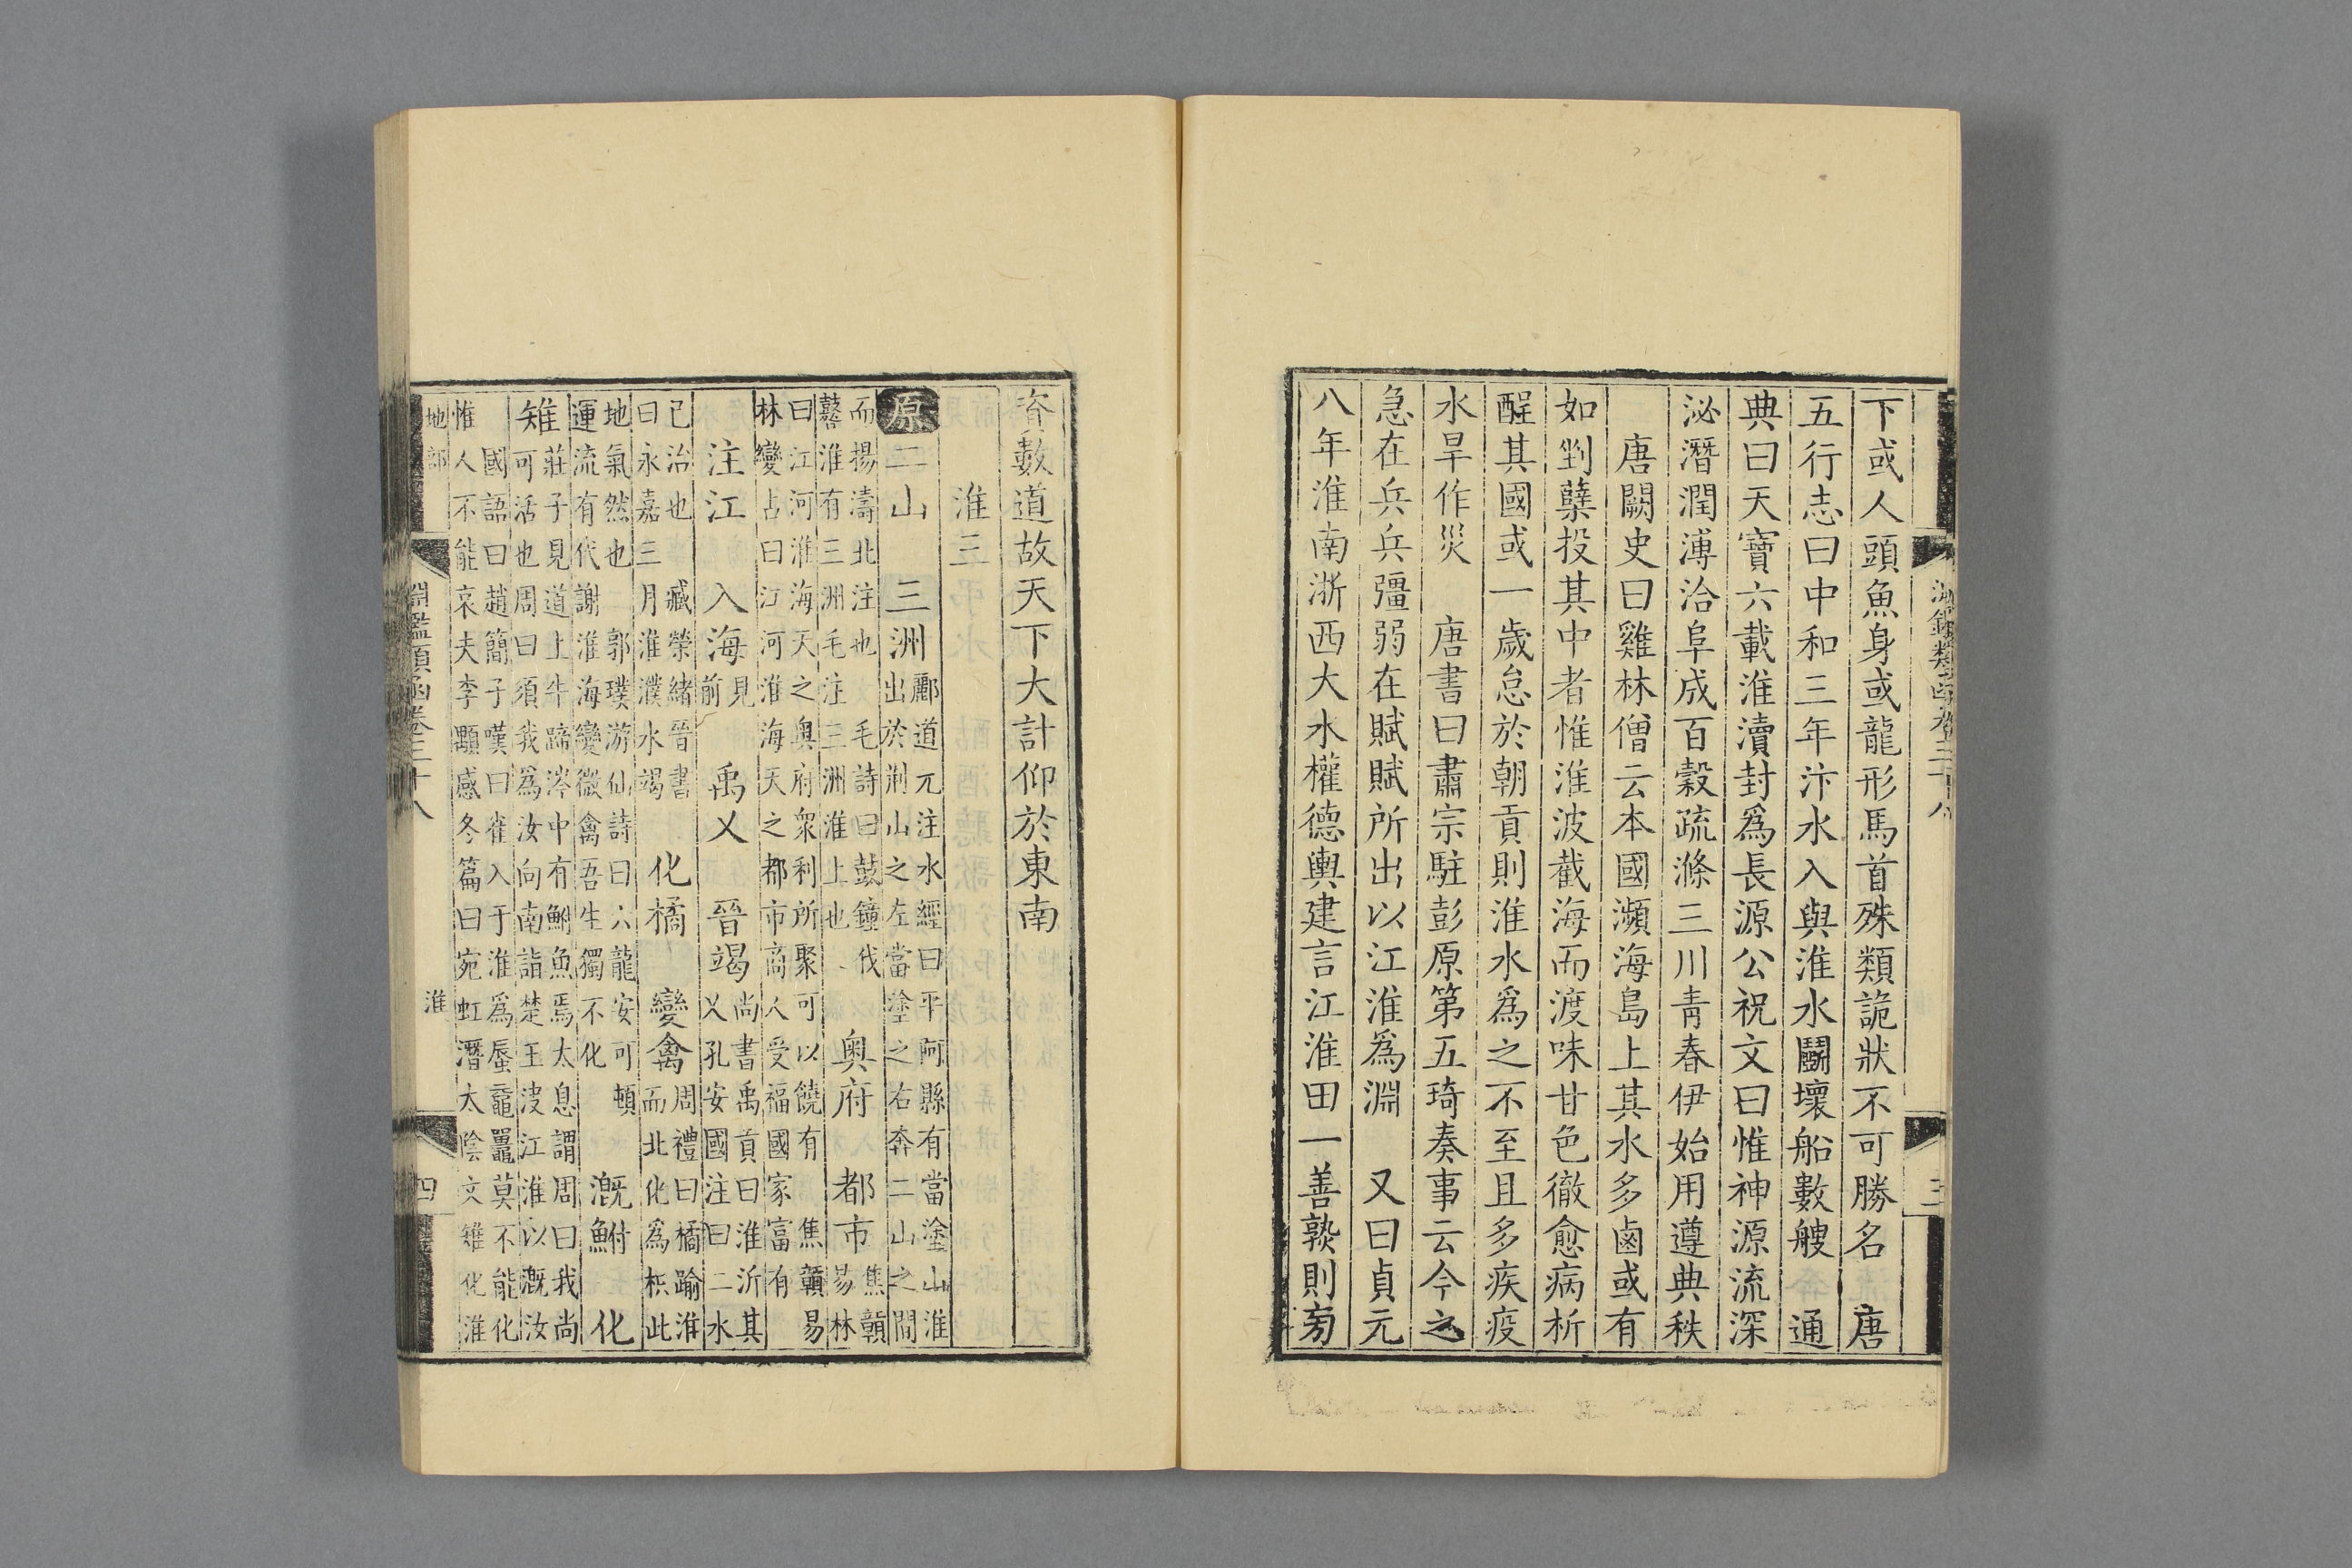 淵鑑類函卷三十八　三
下或人頭魚身或龍形馬首殊類詭狀不可勝名　唐
五行志曰中和三年汴水入與淮水鬭壞船數艘　通
典曰天寶六載淮瀆封爲長源公祝文曰惟神源流深
泌潛潤溥洽阜成百穀疏滌三川青春伊始用遵典秩
唐闕史曰雞林僧云本國瀕海島上其水多鹵或有
如剉蘖投其中者惟淮波截海而渡味甘色徹愈病析
醒其國或一歲怠於朝貢則淮水爲之不至且多疾疫
水旱作災　唐書曰肅宗駐彭原第五琦奏事云今之
急在兵兵彊弱在賦賦所出以江淮爲淵　又曰貞元
八年淮南浙西大水權德輿建言江淮田一善孰則旁
資數道故天下大計仰於東南
淮三
原二山　三洲
酈道元注水經曰平阿縣有當塗山淮
出於荆山之左當塗之右奔二山之間
而揚濤北注也　毛詩曰鼓鐘伐
鼛淮有三洲毛注三洲淮上也
奧府　都市
焦贛
易林
曰江河淮海天之奧府衆利所聚可以饒有　焦贛易
林變占曰江河淮海天之都市商人受福國家富有
注江　入海
見
前
禹乂　晉竭
尚書禹貢曰淮沂其
乂孔安國注曰二水
已治也　臧榮緒晉書
曰永嘉三月淮濮水竭
化橘　變禽
周禮曰橘踰淮
而北化爲枳此
地氣然也　郭璞游仙詩曰六龍安可頓
運流有代謝淮海變微禽吾生獨不化
漑鮒　化
雉
莊子見道上牛蹄涔中有鮒魚焉太息謂周曰我尚
可活也周曰須我爲汝向南詣楚王波江淮以漑汝
國語曰趙簡子嘆曰雀入于淮爲蜃黿鼉莫不能化
惟人不能哀夫李顒感冬篇曰宛虹潛太陰文雉化淮
地部　淵鑑類函卷三十八　淮　四